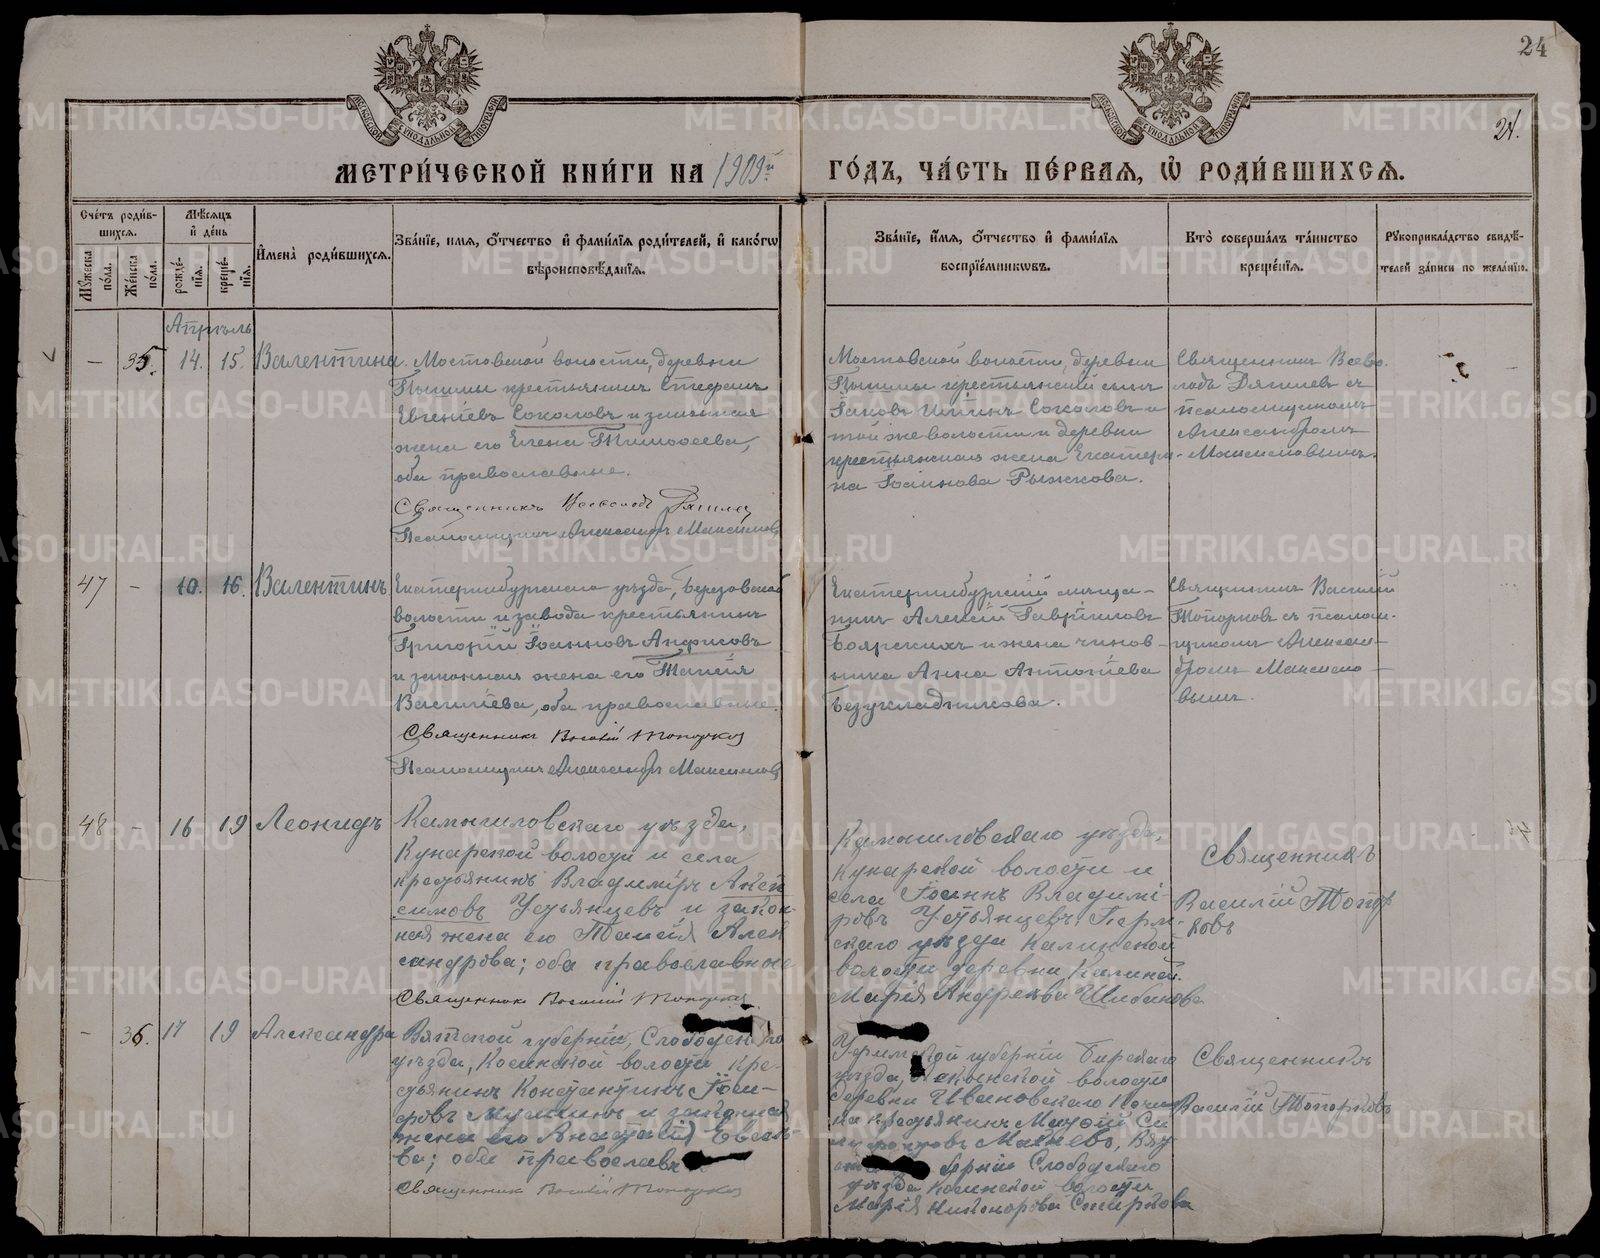 24
24.
МЕТРИ́ЧЕСКОЙ КНИ́ГИ НА 1909й ГО́ДЪ, ЧА́СТЬ ПЕ́РВАЯ, Ѡ РОДИ́ВШИХСЯ.
Сче́тъ роди́вшихся.
Мѣ́сяцъ и҆ де́нь
Мꙋ́жеска по́ла.
Же́нска по́ла.
рожде́нїя.
креще́нїя.
И҆мена̀ роди́вшихся.
Зва́нїе, и҆мя, ѻ҆́тчество и҆ фами́лїя роди́телей, и҆ како́гѡ
вѣроисповѣ́данїя.
Зва́нїе, и҆́мя, ѻ҆́тчество и҆ фами́лїя
воспрїе́мникѡвъ.
Кто̀ соверша́лъ та́инство
креще́нїя.
Рꙋкоприкла́дство свидѣ́-
телей за́писи по жела́нїю.
Апрѣль
– 35. 14. 15. Валентина.
Мостовской волости, деревни
Пышмы крестьянинъ Стефанъ
Евгеніевъ Соколовъ и законная
жена его Елена Тимоѳеева,
оба православные.
Священникъ Всеволодъ
Псаломщикъ Александръ Максимовъ
Мостовской волости, деревни
Пышмы крестьянскій сынъ
Іаковъ Соколовъ и
той же волости и деревни
крестьянская жена Екатери-
на Іоаннова Рыжкова.
Священникъ Всево-
лодъ съ
псаломщикомъ
Александромъ
Максимовымъ.
47 – 10. 16. Валентинъ
Екатеринбургскаго уѣзда, Березовской
волости и завода крестьянинъ
Григорій Іоанновъ Анфисовъ
и законная жена его Таисія
Васильева, оба православные.
Священникъ Василій Топорковъ
Псаломщикъ Александръ Максимовъ
Екатеринбургскій мѣща-
нинъ Алексій Гавріиловъ
Боярскихъ и жена чинов-
ника Анна Антоніева
Безукладникова.
Священникъ Василій
Топорковъ съ псалом-
щикомъ Алексан-
дромъ Максимо-
вымъ.
48 – 16 19 Леонидъ
Камышловскаго уѣзда,
Кунарской волости и села
крестьянинъ Владиміръ Аки-
симовъ Устьянцевъ и закон-
ная жена его Таисія Алек-
сандрова; оба православные
Священникъ Василій Топорковъ
Камышловскаго уѣзда,
Кунарской волости и
села Іоаннъ Владимі-
ровъ Устьянцевъ, Перм-
скаго уѣзда Калинской
волости деревни Калиной
Марія Андреева Шибанова
Священникъ
Василій Топор-
ковъ
– 36. 17 19 Александра
Вятской губерніи, Слободского
уѣзда, Косинской волости кре-
стьянинъ Константинъ Іоси-
фовъ и законная
жена его Анастасія
ва; оба православн
Священникъ Василій Топорковъ
Уфимской губерніи Бирскаго
уѣзда, волости
деревни Ивановскаго Почин-
ка крестьянинъ
Вят-
берніи Слободскаго
уѣзда Косинской волости
Марія Никанорова Смирнова
Священникъ
Василій Топорковъ